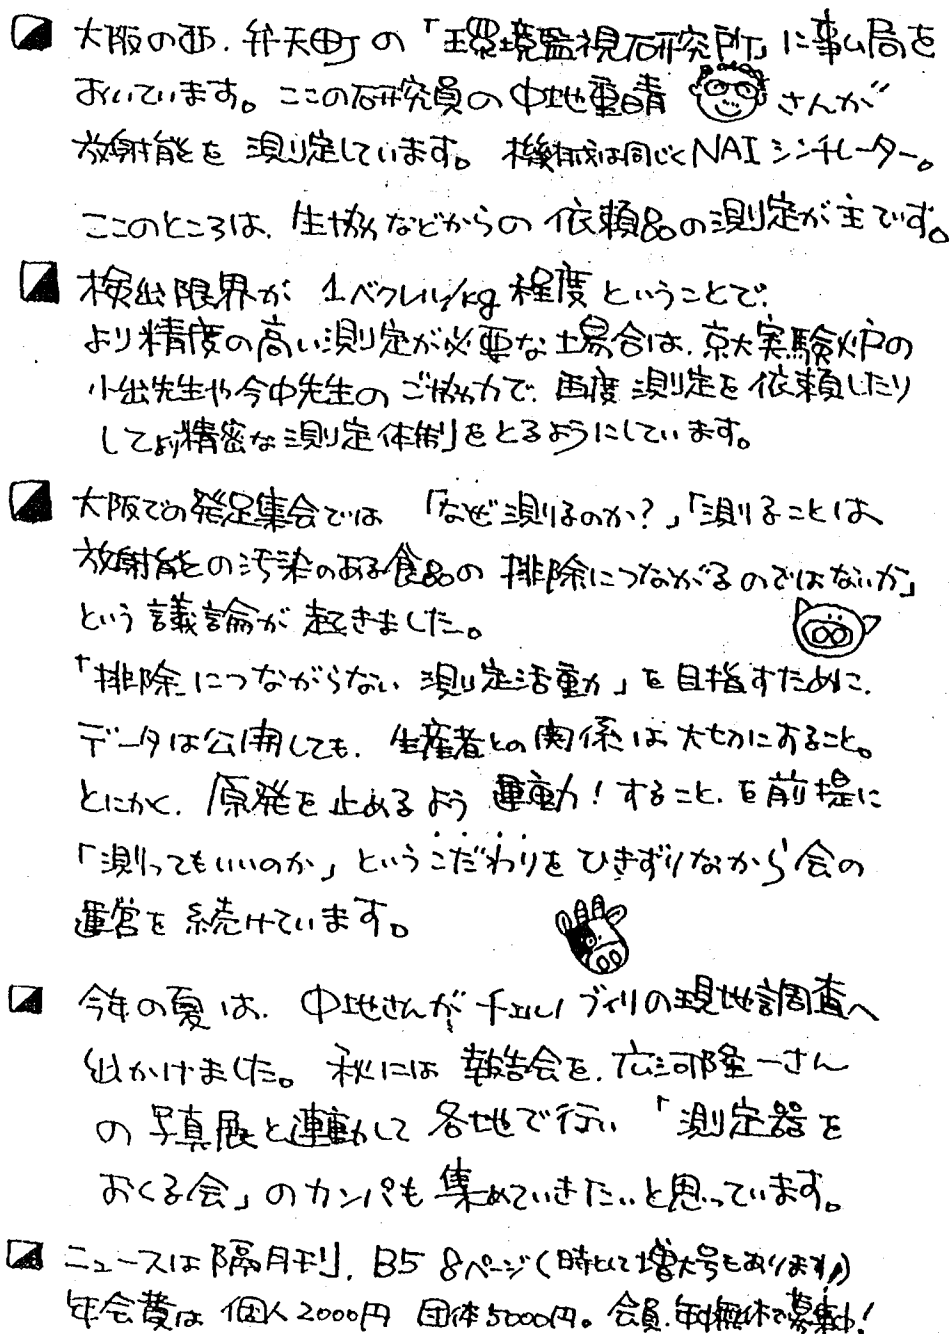 大阪の西、弁天町の「環境監視研究所」に事ム局を
おいています。ここの研究員の中地重晴さんが
放射能を測定しています。機械は同じくNAIシンチレーター。
ここのところは、生協などからの依頼品の測定が主です。
検出限界が1ベクレル/kg程度ということで、
より精度の高い測定が必要な場合は、京大実験炉の
小出先生や今中先生のご協力で、再度測定を依頼したり
してより精密な測定体制をとるようにしています。
大阪での発足集会では「なぜ測るのか？」「測ることは
放射能との汚染のある食品の排除につながるのではないか」
という議論が起きました。
「排除につながらない測定活動」を目指すために、
データは公開しても、生産者との関係は大切にすること。
とにかく、原発を止めるよう運動！すること、を前提に
「測ってもいいのか」というこだわりをひきずりながら会の
運営を続けています。
今年の夏は、中地さんがチェルノブイリの現地調査へ
出かけました。秋には報告会を、広河隆一さん
の写真展と連動して各地で行い「測定器を
おくる会」のカンパも集めていきたいと思っています。
ニュースは隔月刊、B5 8ページ(時として増大号もあります！)
年会費は個人2000円 団体5000円。会員、年中無休で募集中！